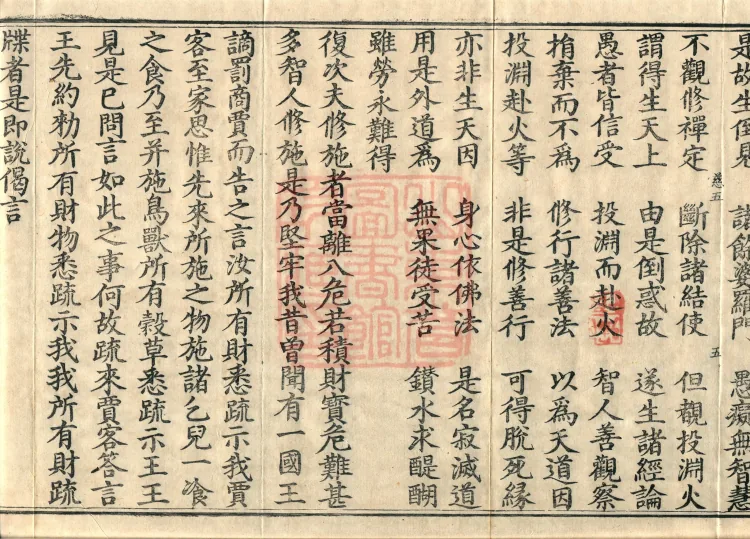 是故生倒見 諸餘婆羅門 愚癡無智慧
不觀修禪定 斷除諸結使 但觀投淵火
謂得生天上 由是倒惑故 遂生諸經論
愚者皆信受 投淵而赴火 智人善觀察
捐棄而不爲 修行諸善法 以爲天道因
投淵赴火等 非是修善行 可得脫死縁
亦非生天因 身心依佛法 是名寂滅道
用是外道爲 無果徒受苦 鑚水求醍醐
雖勞永難得
復次夫修施者當離八危若積財寶危難甚
多智人修施是乃堅牢我昔曾聞有一國王
謫罰商賈而告之言汝所有財悉疏示我賈
客至家思惟先來所施之物施諸乞兒一飡
之食乃至并施鳥獸所有穀草悉疏示王王
見是已問言如此之事何故疏來賈客答言
王先約勑所有財物悉疏示我我所有財疏
牒者是即說偈言
慈五
五